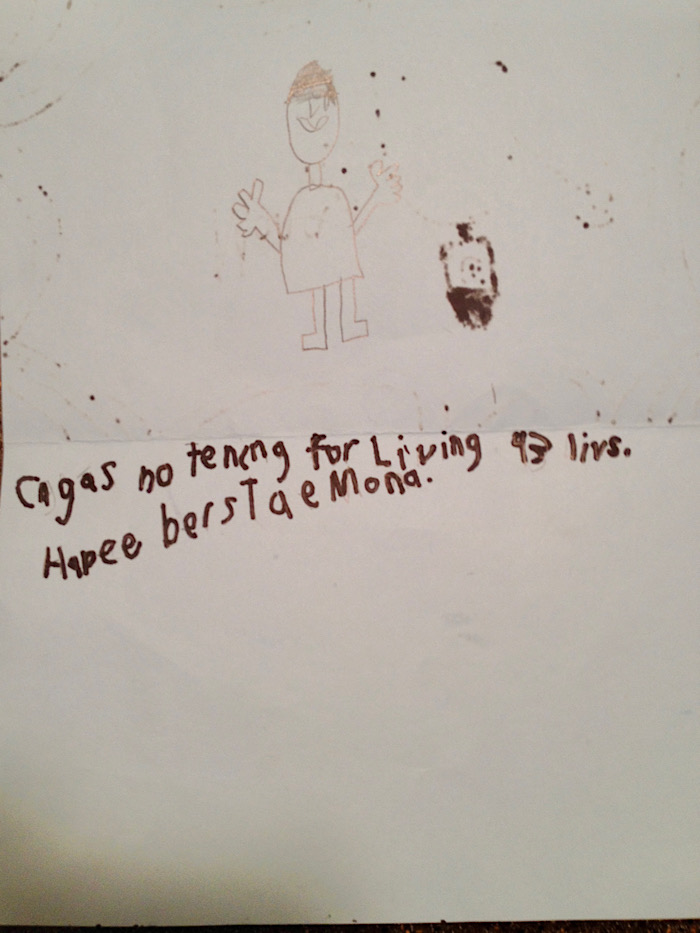 Cngas no teneng for Living 93 livs.
Hapee bersTae Mona.